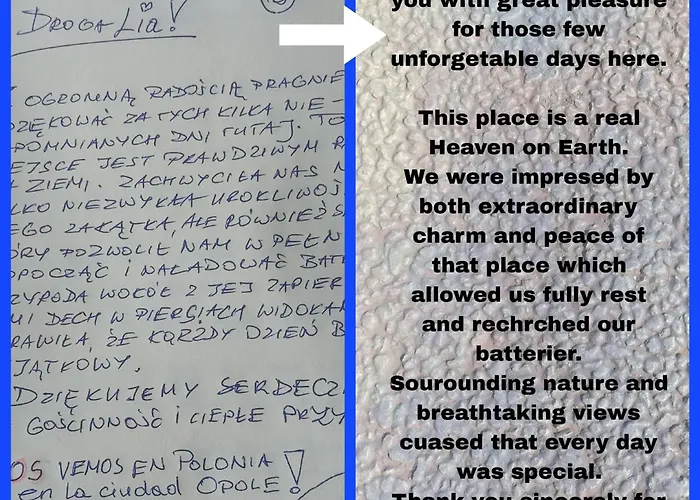 DROGA Lia!
OGROMNĄ RADOŚCIĄ PRAGNIE
ZA TYCH KILKA NIE-
DNI TUTAJ. TO
JEST PRAWDZIWYM
ZIEMI. ZACHWYCIŁA NAS
NIEZWYKŁA UROKLIWOŚ
ZAKĄTKA, ALE RÓWNIEŻ
POZWOLIŁ NAM W PEŁN
I NAŁADOWAĆ BAT
WOKÓŁ Z JEJ ZAPIER
MI DECH W PIERSIACH WIDOKAM
RAWIŁA, ŻE KARZDY DZIEŃ B
JĄTKOWY.
DZIĘKUJEMY SERDECZ
GOŚCINNOŚĆ I CIEPŁE PRZY
OS VEMOS EN POLONIA
en la ciudad OPOLE!
you with great pleasure
for those few
unforgetable days here.
This place is a real
Heaven on Earth.
We were impresed by
both extraordinary
charm and peace of
that place which
allowed us fully rest
and rechrched our
batterier.
Sourounding nature and
breathtaking views
cuased that every day
was special.
Thank you sincerely for